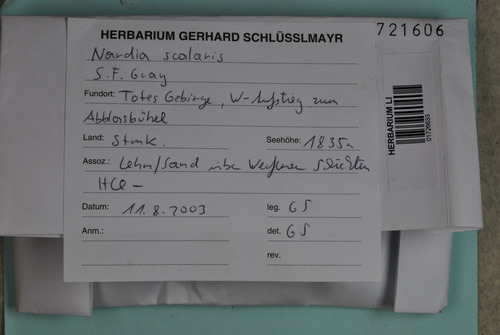 HERBARIUM GERHARD SCHLÜSSLMAYR
721606
Nardia scalaris
S.F. Gray
Fundort: Totes Gebirge, W-Aufstieg zum
Abblasbühel
Land: Stmk. Seehöhe: 1835m
Assoz.: Lehm/Sand über Werfener Schichten
HCl -
Datum: 11.8.2003 leg. GS
Anm.: det. GS
rev.
HERBARIUM LI
01728633